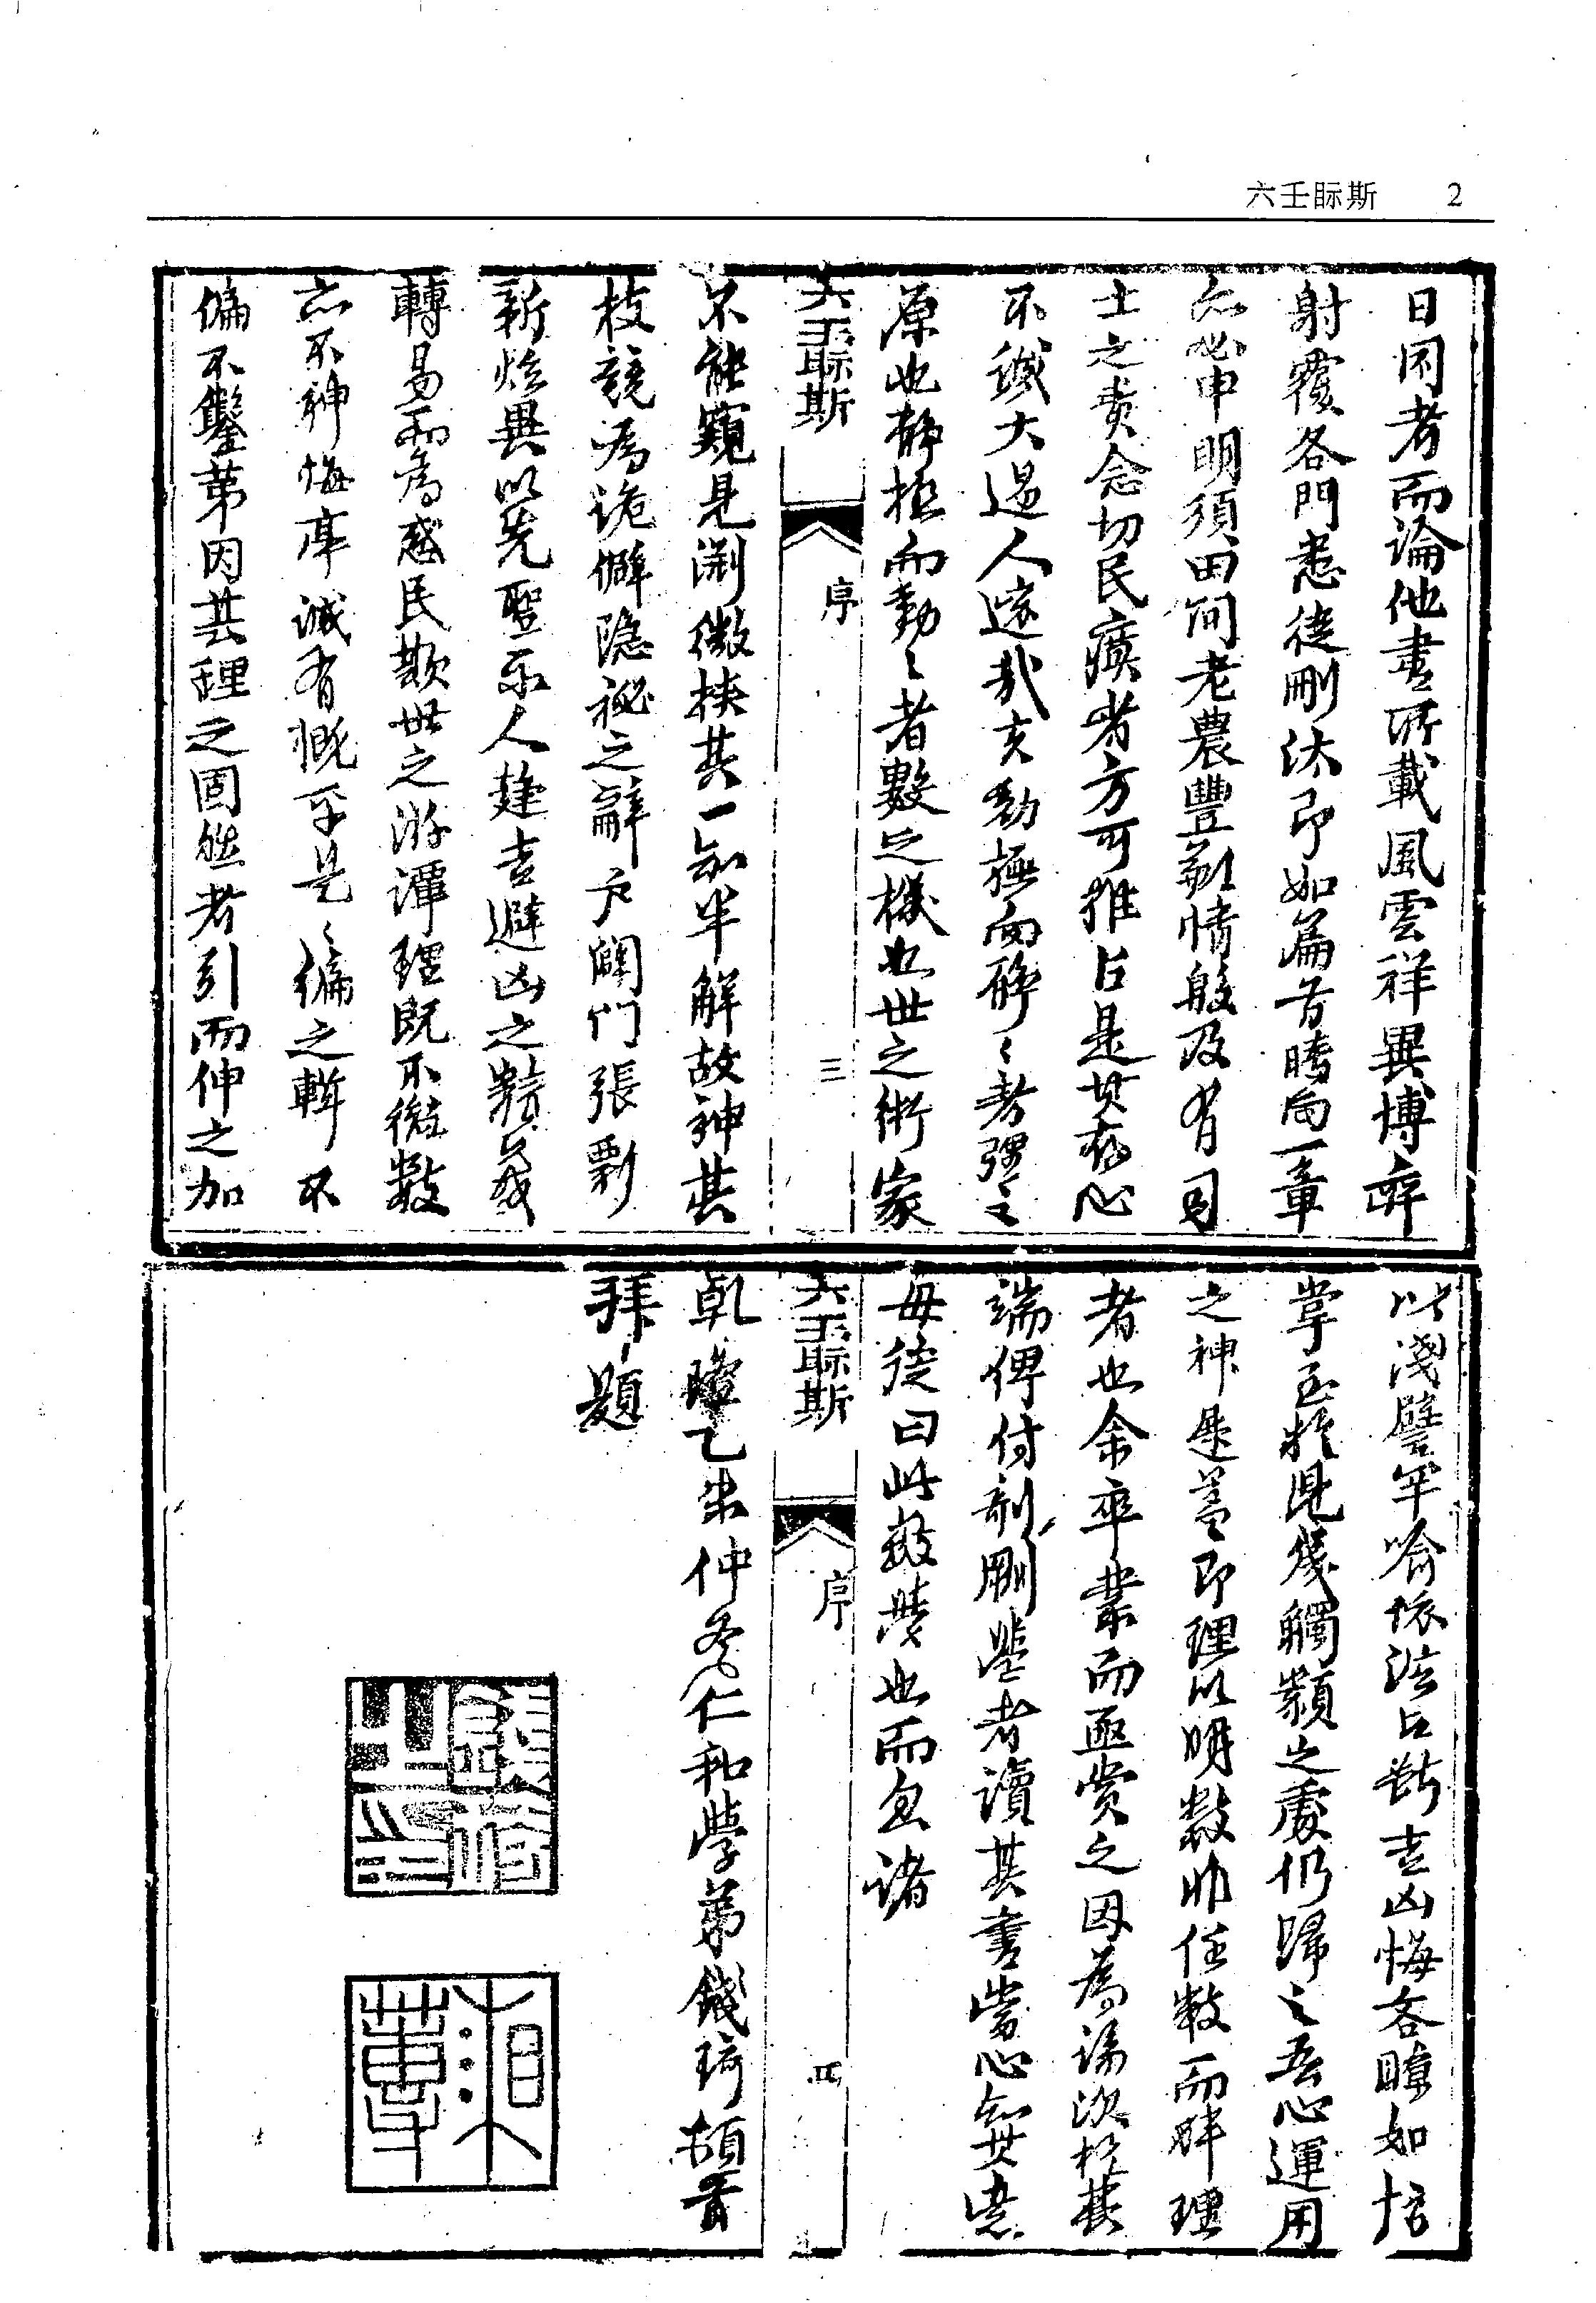 六壬眎斯 2
日同者而論他書所載風雲祥異博弈
射覆各門悉從刪汰即如篇首晴雨一章
亦必申明須田間老農豐歉情殷及有司
士之責念切民瘼者方可推占是其存心
不誠大過人遠哉夫動極而靜〻者彊之
原也靜極而動〻者數之機也世之術家
六壬眎斯 序 三
不能窺見淵微挾其一知半解故神其
枝競為詭僻隱祕之辭戶闢門張剽
新炫異以先聖示人趨吉避凶之精義
轉易而為惑民欺世之游譚理既不徵數
亦不神悔庵誠有慨乎是〻編之輯不
偏不鑿第因其理之固然者引而伸之加
以淺譬罕喻依法占斷吉凶悔吝瞭如指
掌至於見幾觸類之處仍歸之吾心運用
之神是蓋即理以明數非任數而畔理
者也余卒業而亟賞之因為論次於其
端俾付剞劂鑒者讀其書當心知其意
毋徒曰此數學也而忽諸
六壬眎斯 序 四
乾隆乙未仲冬仁和學弟錢琦頓首
拜題
湘蓴